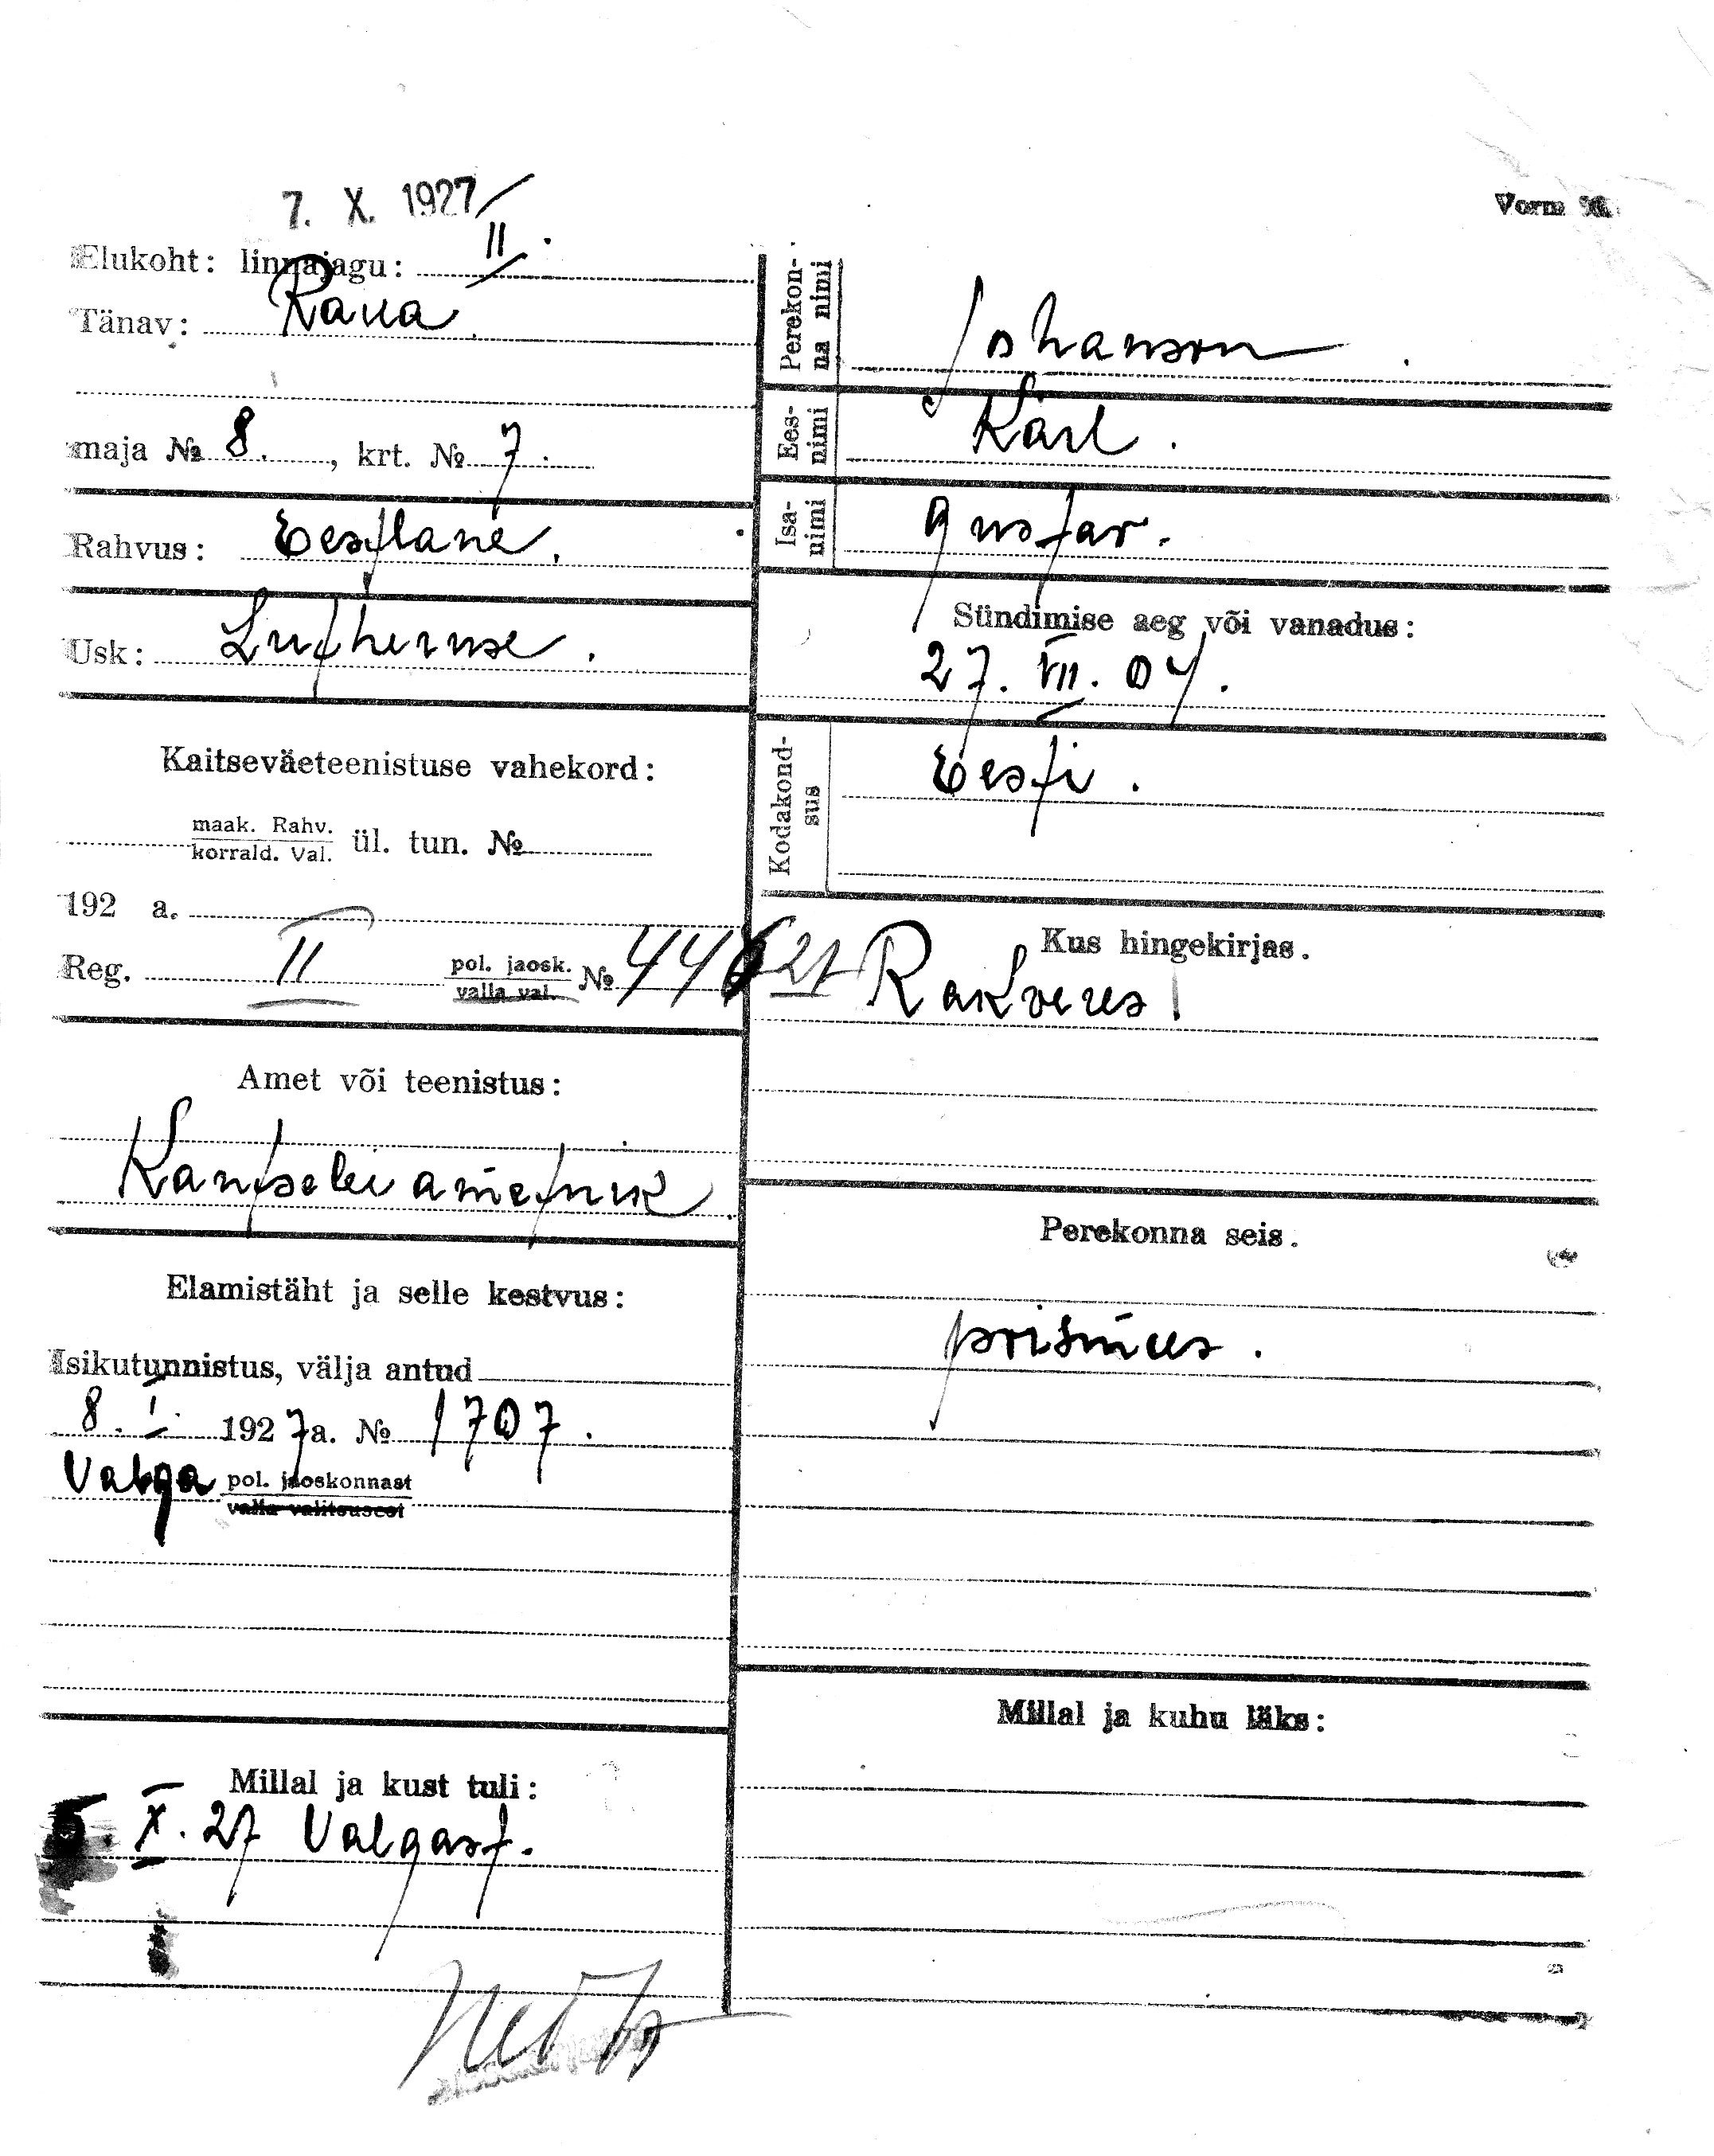 7. X. 1927
Vorm
Elukoht: linnajagu: II.
Tänav: Raua
maja № 8., krt. № 7.
Rahvus: Eestlane.
Usk: Lutheruse.
Kaitseväeteenistuse vahekord:
maak. Rahv.
korrald. Val. ül. tun. №
192 a.
Reg. II pol. jaosk.
valla val. № 446 27
Amet või teenistus:
Kantselei ametnik
Elamistäht ja selle kestvus:
Isikutunnistus, välja antud
8. I. 1927 a. № 1707.
Valga pol. jaoskonnast
valla valitsusest
Millal ja kust tuli:
5. X. 27 Valgast.
Perekonna nimi Johanson.
Eesnimi Karl.
Isanimi Gustav.
Sündimise aeg või vanadus:
27. VII. 04.
Kodakondsus Eesti.
Kus hingekirjas.
Rakveres
Perekonna seis.
poismees.
Millal ja kuhu läks: